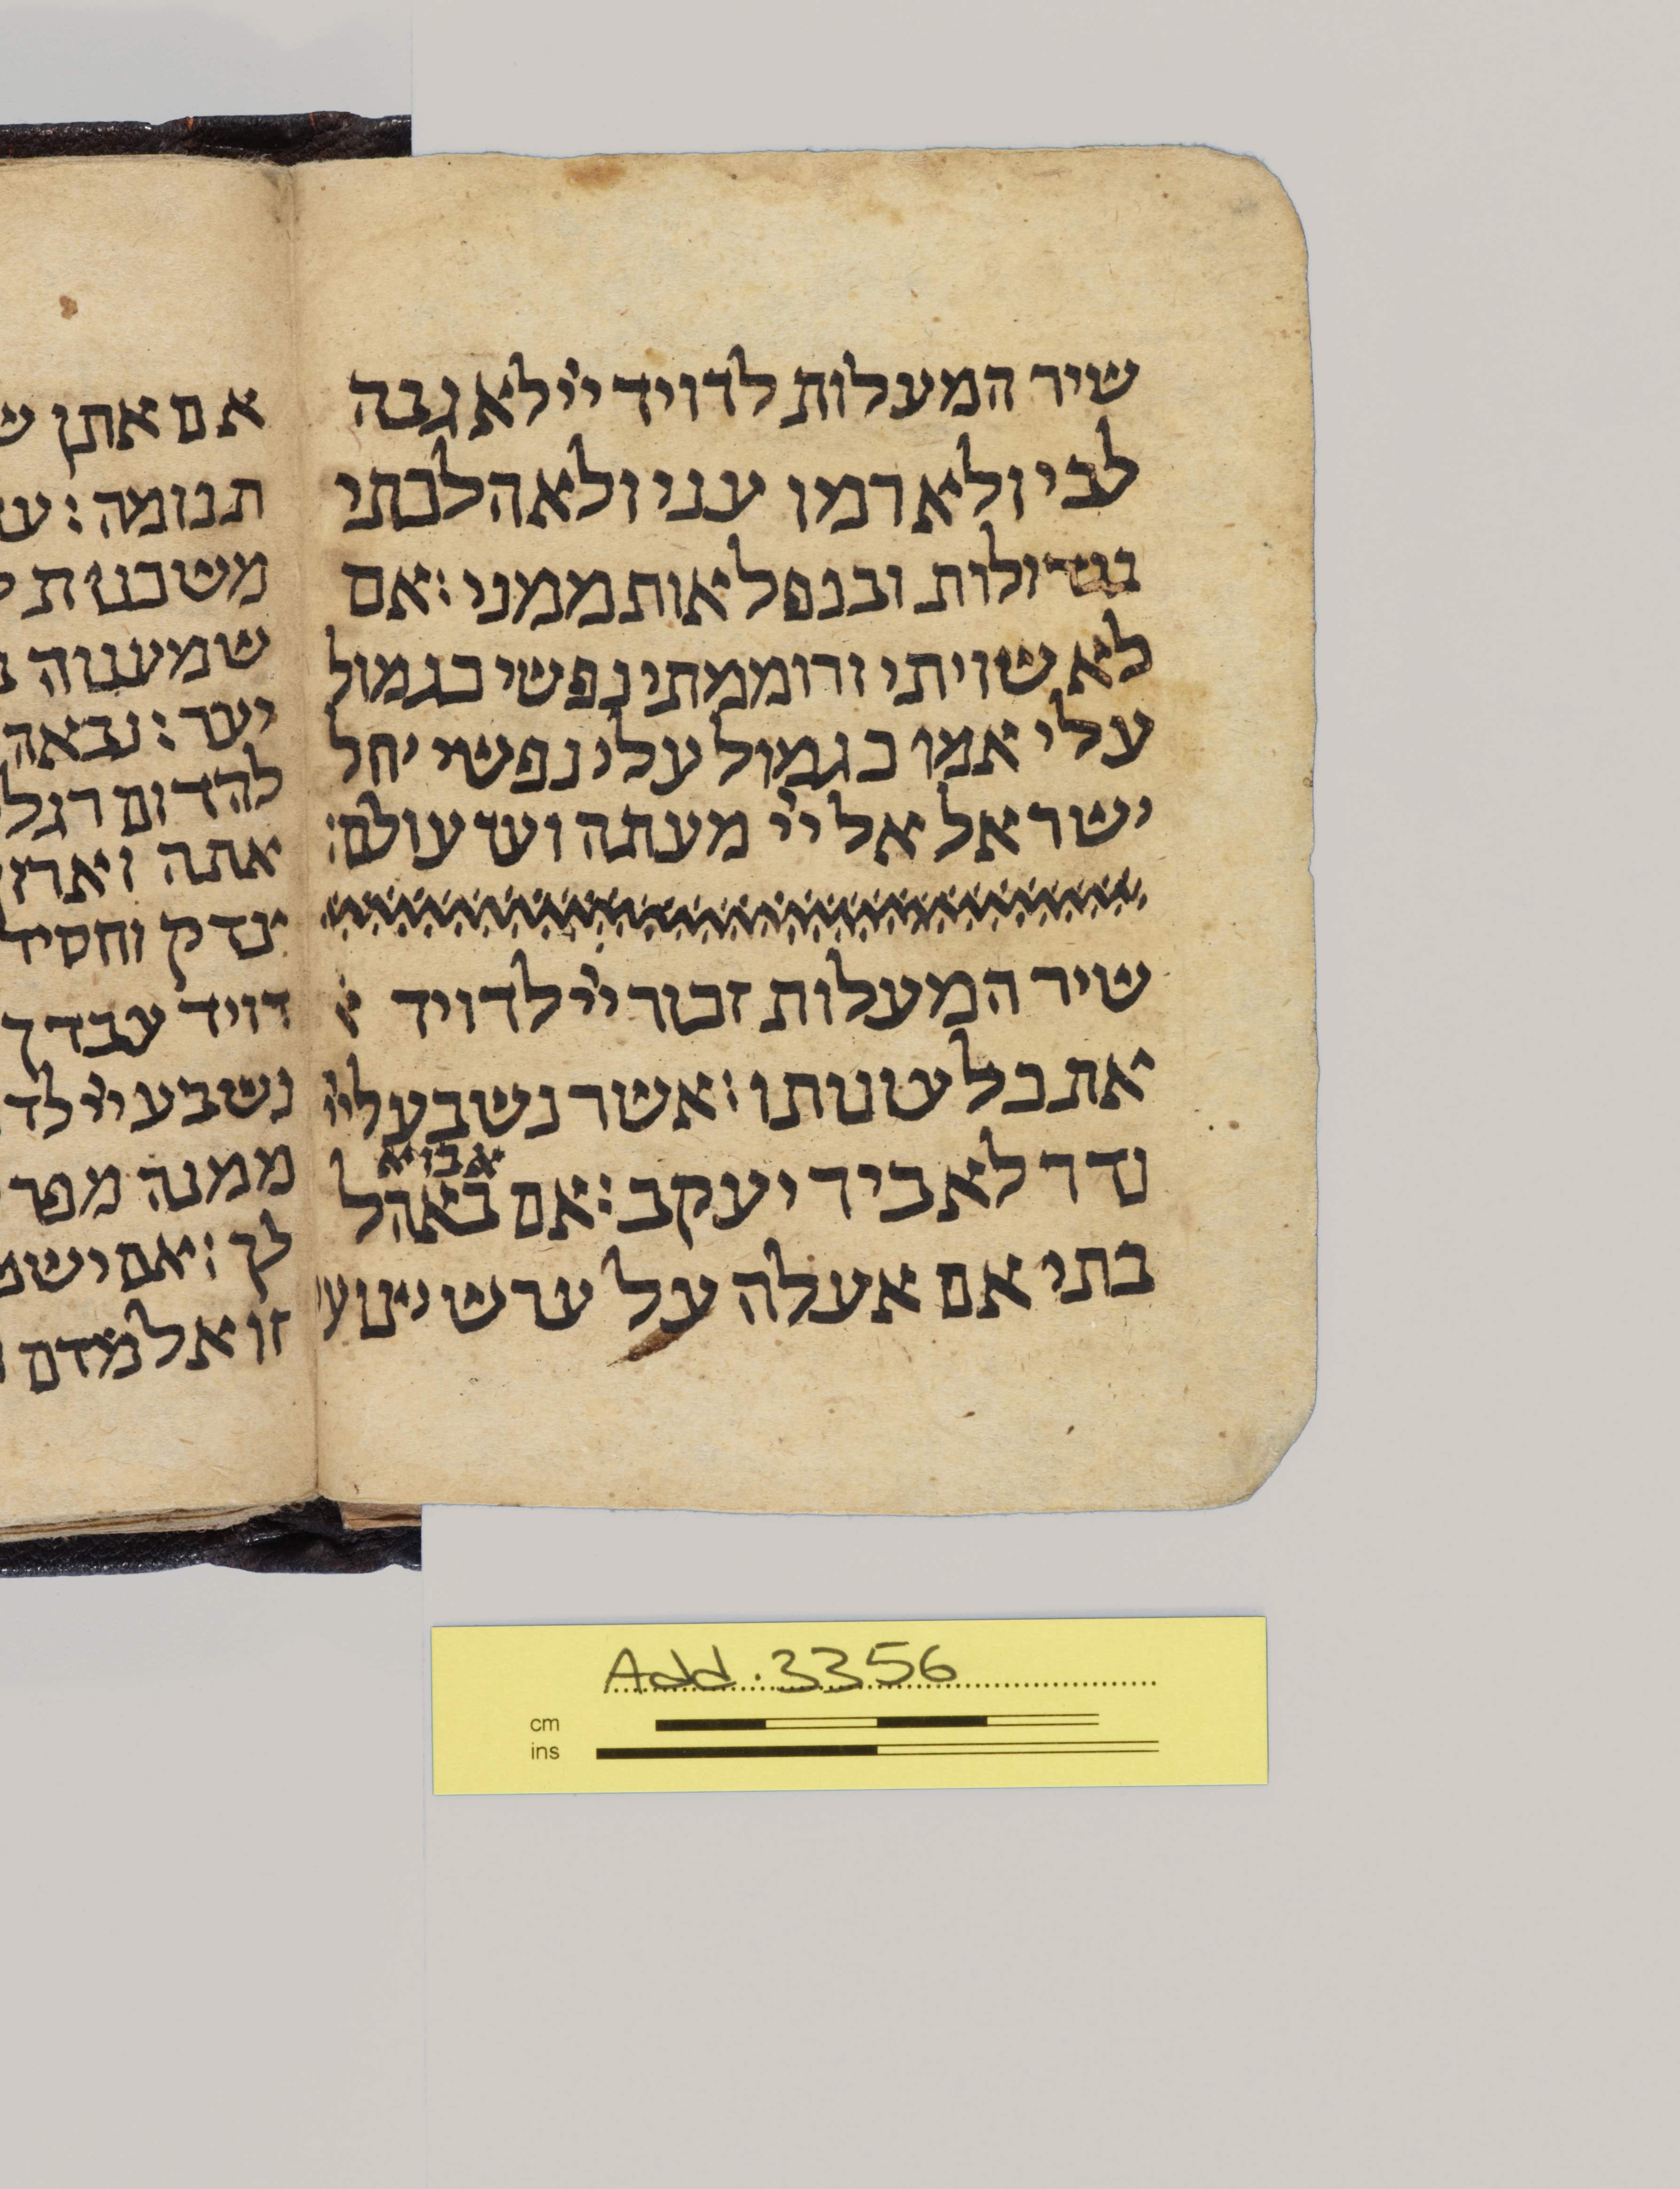 שיר המעלות לדויד ייי לא גבה
לבי ולא רמו עני ולא הלכתי
בגדולות ובנפלאות ממני : אם
לא שויתי ורוממתי נפשי כגמול
עלי אמו כגמול עלי נפשי יחל
ישראל אל ייי מעתה ועד עולם :
שיר המעלות זכור ייי לדויד א
את כל ענותו : אשר נשבע לייי
נדר לאביר יעקב : אם באהל
אבוא
בתי אם אעלה על ערש יצועי
אם אתן ש
תנומה : ע
משכנות ל
שמענוה ב
יער : נבאה
להדום רגל
אתה וארון
צדק וחסיד
דויד עבדך
נשבע ייי לד
ממנה מפר
לך : אם ישמ
זו אלמדם
Add. 3356
cm
ins